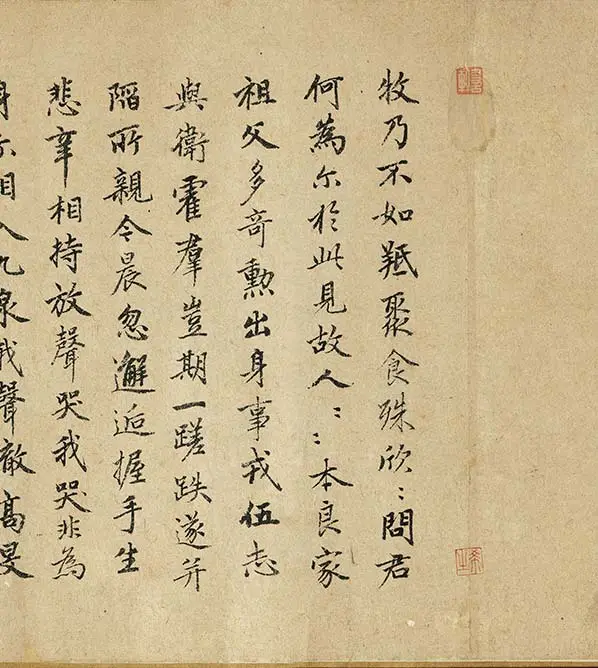 牧乃不如羝聚食殊欣:問君
何為尓於此見故人::本良家
祖父多奇勲出身事戎伍志
與衛霍羣豈期一蹉跌遂并
陷所親今晨忽邂逅握手生
悲辛相持放聲哭我哭非為
身尓相入九泉我聲徹髙旻